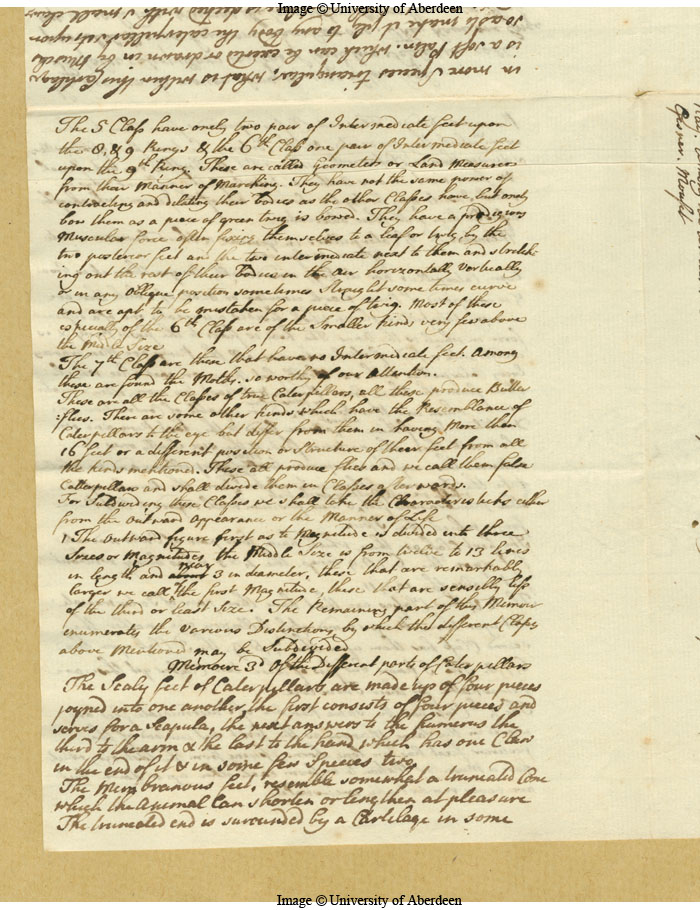 Image © University of Aberdeen
in more Species triangular, what is within this Cartilage
is a soft Palm. which can be exerted or drawn in by Muscles
The 5 Class have onely two pair of Intermedicate feet upon
the 8. & 9 Rings & the 6th Class one pair of Intermedicate feet
upon the 9th Ring. These are called Geometers or Land Measurers
from their Manner of Marching. They have not the same power of
contracting and dilating their bodies as the other Classes have, but onely
bow them as a piece of green twig is bowed. They have a prodigious
Muscular force often fixing themselves to a leaf or twig, by the
two posterior feet and the two intermedicate next to them and stretch-
ing out the rest of their bodies in the air horizontally Vertically
or in any Oblique position sometimes straight some times curve
and are apt to be mistaken for a piece of twig. Most of these
especially of the 6th Class are of the Smaller kinds very few above
the Middle Size
The 7th Class are these that have no Intermedicate feet. Among
these are found the Moths. so worthy of our Attention.
These are all the Classes of true Caterpillars, all these produce Butter
:flies. There are some other kinds which have the Resemblance of
Caterpillars to the eye but differ from them in having More then
16 feet or a different position or Structure of their feet from all
the kinds mentioned. These all produce flies and we call them false
Caterpillars and shall divide them in Classes afterwards.
For Subdividing these Classes we shall take the Characteristicks either
from the Outward Appearance or the Manner of Life
1 The Outward figure first as to Magnitude is divided into three
Sizes or Magnitudes the Middle Size is from twelve to 13 lines
in length and about may 3 in diameter, these that are remarkably
larger we call the first Magnitude, these that are sensibly less
of the third or least Size. The Remaining part of this Memoir
enumerates the Various Distinctions by which the different Classes
above Mentioned may be Subdivided
Memoire 3d Of the Different parts of Caterpillars
The Scaly feet of Caterpillars are made up of four pieces
joyned into one another, the first consists of four pieces and
serves for a Scapula, the next answers to the humerus the
third to the arm & the last to the hand which has one Claw
in the end of it & in some few Species two.
The Membranous feet, resemble somewhat a truncated Cone
which the Animal Can shorten or lengthen at pleasure
The truncated end is surounded by a Cartilage in some
Image © University of Aberdeen